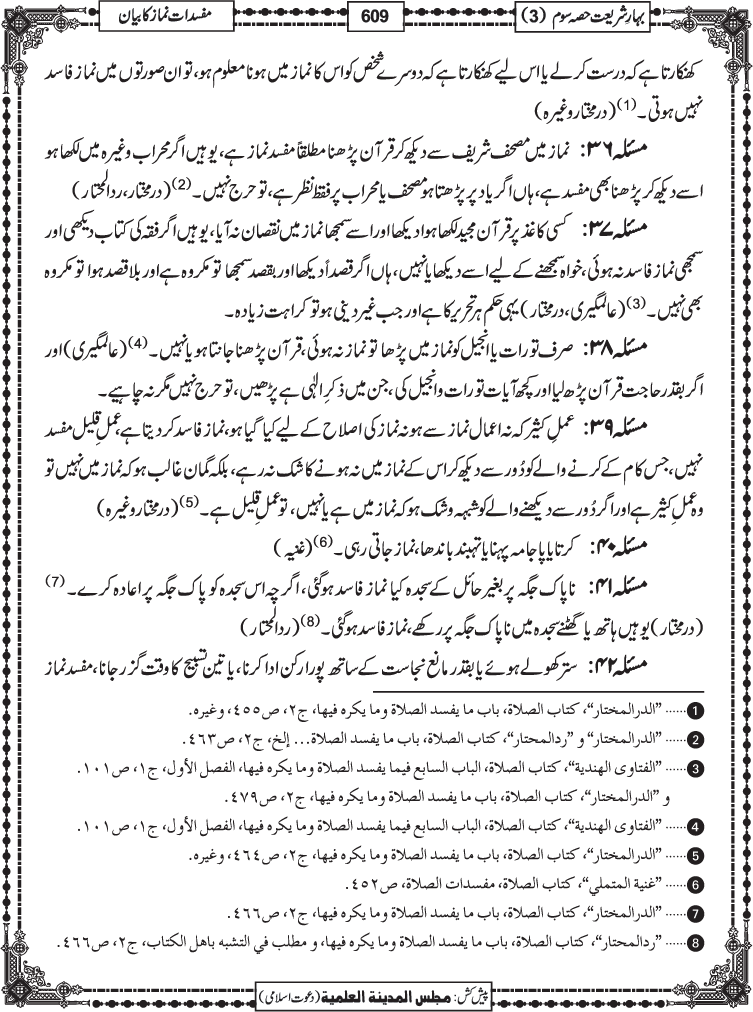 بہارِشریعت حصہ سوم (3)
609
مفسدات نماز کا بیان
کھنکارتا ہے کہ درست کر لے یا اس لیے کھنکارتا ہے کہ دوسرے شخص کو اس کا نماز میں ہونا معلوم ہو، تو ان صورتوں میں نماز فاسد
نہیں ہوتی۔ (1) (درمختار وغیرہ)
مسئلہ ۳۶: نماز میں مصحف شریف سے دیکھ کر قرآن پڑھنا مطلقاً مفسدِ نماز ہے، یوہیں اگر محراب وغیرہ میں لکھا ہو
اسے دیکھ کر پڑھنا بھی مفسد ہے، ہاں اگر یاد پر پڑھتا ہو مصحف یا محراب پر فقط نظر ہے، تو حرج نہیں۔ (2) (درمختار، ردالمحتار)
مسئلہ ۳۷: کسی کاغذ پر قرآن مجید لکھا ہوا دیکھا اور اسے سمجھا نماز میں نقصان نہ آیا، یوہیں اگر فقہ کی کتاب دیکھی اور
سمجھی نماز فاسد نہ ہوئی، خواہ سمجھنے کے لیے اسے دیکھا یا نہیں، ہاں اگر قصداً دیکھا اور بقصد سمجھا تو مکروہ ہے اور بلا قصد ہوا تو مکروہ
بھی نہیں۔ (3) (عالمگیری، درمختار) یہی حکم ہر تحریر کا ہے اور جب غیر دینی ہو تو کراہت زیادہ۔
مسئلہ ۳۸: صرف تورات یا انجیل کو نماز میں پڑھا تو نماز نہ ہوئی، قرآن پڑھنا جانتا ہو یا نہیں۔ (4) (عالمگیری) اور
اگر بقدر حاجت قرآن پڑھ لیا اور کچھ آیات تورات و انجیل کی، جن میں ذکرِ الٰہی ہے پڑھیں، تو حرج نہیں مگر نہ چاہیے۔
مسئلہ ۳۹: عملِ کثیر کہ نہ اعمال نماز سے ہو نہ نماز کی اصلاح کے لیے کیا گیا ہو، نماز فاسد کر دیتا ہے، عملِ قلیل مفسد
نہیں، جس کام کے کرنے والے کو دُور سے دیکھ کر اس کے نماز میں نہ ہونے کا شک نہ رہے، بلکہ گمان غالب ہو کہ نماز میں نہیں تو
وہ عملِ کثیر ہے اور اگر دُور سے دیکھنے والے کو شبہہ و شک ہو کہ نماز میں ہے یا نہیں، تو عملِ قلیل ہے۔ (5) (درمختار وغیرہ)
مسئلہ ۴۰: کرتا یا پاجامہ پہنا یا تہبند باندھا، نماز جاتی رہی۔ (6) (غنیہ)
مسئلہ ۴۱: ناپاک جگہ پر بغیر حائل کے سجدہ کیا نماز فاسد ہوگئی، اگرچہ اس سجدہ کو پاک جگہ پر اعادہ کرے۔ (7)
(درمختار) یوہیں ہاتھ یا گھٹنے سجدہ میں ناپاک جگہ پر رکھے، نماز فاسد ہوگئی۔ (8) (ردالمحتار)
مسئلہ ۴۲: ستر کھولے ہوئے یا بقدر مانع نجاست کے ساتھ پورا رکن ادا کرنا، یا تین تسبیح کا وقت گزر جانا، مفسدِ نماز
1 ...... ”الدرالمختار“، کتاب الصلاة، باب ما يفسد الصلاة وما يكره فيها، ج٢، ص٤٥٥، وغيره.
2 ...... ”الدرالمختار“ و ”ردالمحتار“، كتاب الصلاة، باب ما يفسد الصلاة... إلخ، ج٢، ص٤٦٣.
3 ...... ”الفتاوى الهندية“، كتاب الصلاة، الباب السابع فيما يفسد الصلاة وما يكره فيها، الفصل الأول، ج١، ص١٠١.
و ”الدرالمختار“، كتاب الصلاة، باب ما يفسد الصلاة وما يكره فيها، ج٢، ص٤٧٩.
4 ...... ”الفتاوى الهندية“، كتاب الصلاة، الباب السابع فيما يفسد الصلاة وما يكره فيها، الفصل الأول، ج١، ص١٠١.
5 ...... ”الدرالمختار“، كتاب الصلاة، باب ما يفسد الصلاة وما يكره فيها، ج٢، ص٤٦٤، وغيره.
6 ...... ”غنية المتملي“، كتاب الصلاة، مفسدات الصلاة، ص٤٥٢.
7 ...... ”الدرالمختار“، كتاب الصلاة، باب ما يفسد الصلاة وما يكره فيها، ج٢، ص٤٦٦.
8 ...... ”ردالمحتار“، كتاب الصلاة، باب ما يفسد الصلاة وما يكره فيها، و مطلب في التشبه باهل الكتاب، ج٢، ص٤٦٦.
پیش کش: مجلس المدینة العلمیة (دعوت اسلامی)